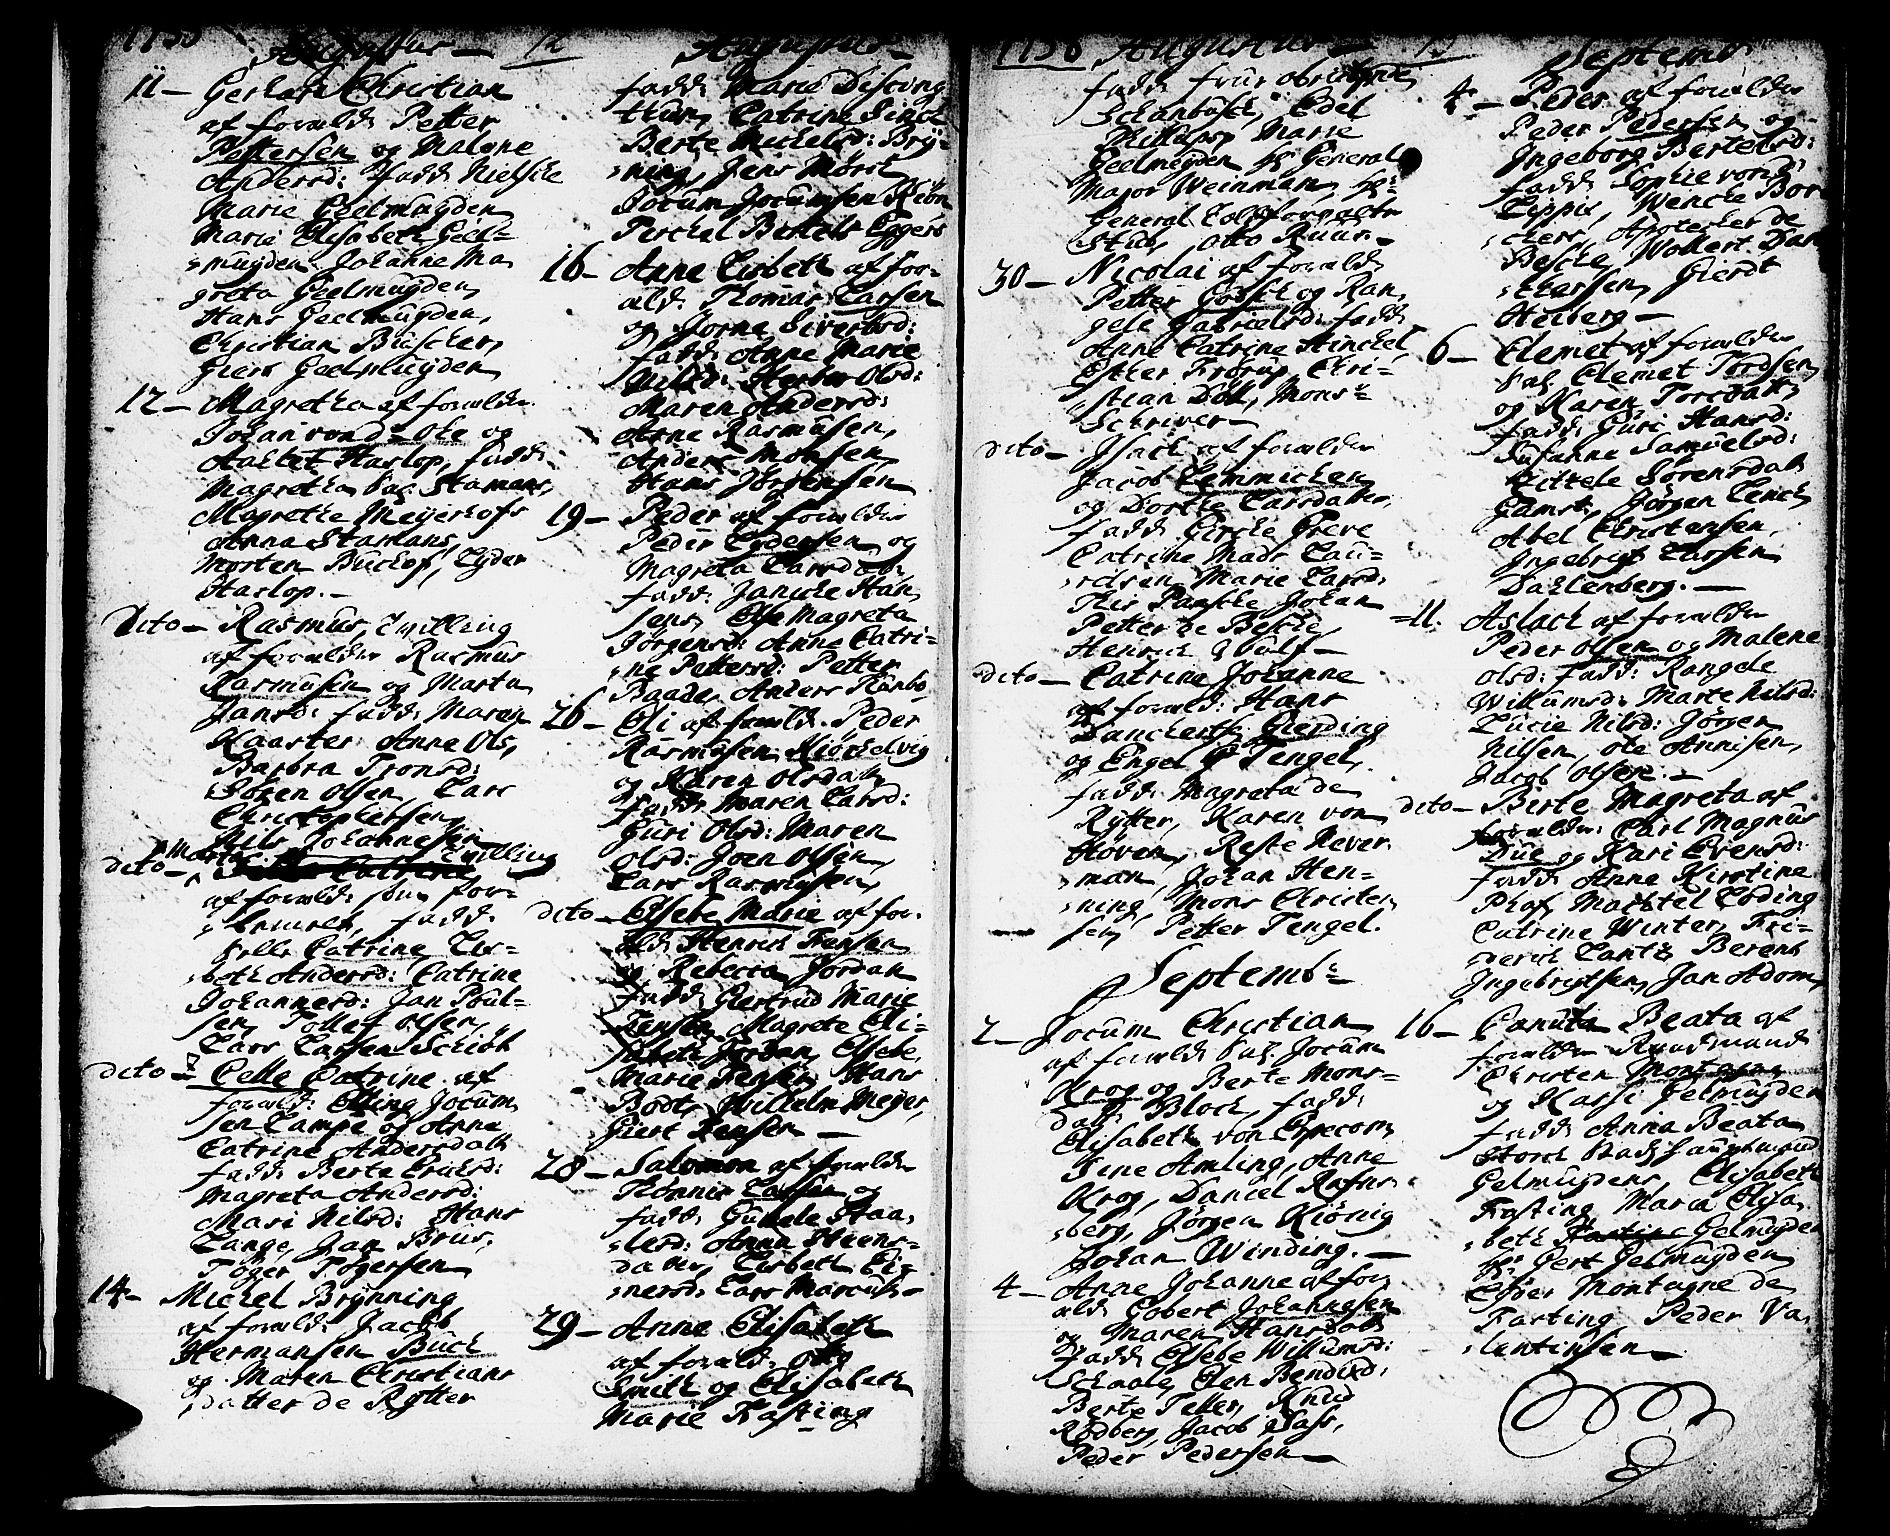 Augustus
11 – Gerhard Christian
af forældr. Petter
Pettersen og Malene
Andersd: fadd: Nielsche
Marie Geelmuyden
Marie Elisabeth Geel=
muyden Johanne Ma
greta Geelmuyden
Hans Geelmuyden,
Christian Büscher,
Giert Geelmuyden
12 – Magretha af forældr.
Johan vond Ohe og
Aaltet Haslop, fadd:
Magretha Stamans,
Magrethe Meyerhofs
Anna Stamans,
Morten Buchof, Eyder
Haslop. –
Dito – Rasmus, tvilling
af forældr Rasmus
Rasmusen og Marta
Jansd: fadd: Maren
Kaaster Anne Ols,
Barbra Tronsd:
Søren Olsen Lars
Christophersen
Nils Johannesen
dito – Marta tvilling
af forældr: som for=
fadd:
Catrine Lis=
beth Andersd: Catrine
Johannesd: Jan Poul=
sen Tollef Olsen,
Lars Larsen Schiøt
dito – Celle Catrine af
forældr: Elling Jocum
sen Lampe og Anne
Catrine Andersdatt
fadd: Berta Erichsd:
Magreta Andersd:
Mari Nilsd: Hans
Lange, Jan Brür,
Tøger Tøgersen
14 – Michel Brynning
af forældr: Jacob
Hermansen Buch
og Maren Christians
datter de Rytter
Augustus
fadd: Maria Discing
thun, Catrine Sinch
Berte Michelsd: Bry=
ning, Jens Mørck
Jocum Jocumsen Kiøn
Perchel Bertels Eggers
16 – Anne Lisbeth af for=
æld: Thomas Larsen
og Jorne Siversd:
fadd: Anne Marie
Nilsd: Herber Olsd:
Maren Andersd:
Arne Rasmusen,
Anders Monsen
Hans Jørgensen
19 – Peder af forældr
Peder Lydersen og
Magreta Larsdatt:
fadd: Janiche Han
sens, Else Magreta
Jørgensd: Anne Catri=
ne Pettersd: Petter
Baade, Anders Runbo
26 – Eli af forældr. Peder
Rasmusen Kiøchelvig
og Karen Olsdatt
fadd: Maren Larsd:
Guri Olsd: Maren
Olsd: Joen Olsen,
Lars Rasmusen,
dito – Elsebe Marie af for.
æld: Henrich Fensen
og Rebecca Jordan
fadd: Giertrud Marie
Fensen Magrete Eli=
sabeth Jordan, Elsebe
Marie Fensen, Hans
Bødt, Wilhelm Meyer,
Giert Hansen –
28 – Salomon af forældr
Tønnis Larsen og
fadd: Gunele Staa,
lersd: Anna Steens=
datter, Lisbeth Ei,
nersd: Lars Marcus –
29 – Anne Elisabeth
af forældr: Otto
Smith og Elisabeth
Marie Fasting
1738 Augustus –
fadd: frur obristinne
Schanbøch, Edel
Phillips, Marie
Geelmuyden hr General
Major Weinman, hr
General Toldforvalter
Stub, Otto Ruus –
30 – Nicolai af forældr
Petter Losch og Ran,
gele Gabrielsd: fadd:
Anne Catrine Hinchel
Esther Frorup, Chri=
stian Døll, Mons:
Schriver –
dito – Isach af forældr
Jacob Lemmichen
og Dorthe Larsdatter,
fadd: Girche Greve
Catrine Mads Lau=
ridsen Marie Larsd:
This Paasche Johan
Petter de Besche,
Henrich Wulf –
dito – Catrine Johanne
af forældr: Hans
Danchertsen Gierding
og Engel Tengel,
fadd: Magreta de
Rytter, Karen von
Hoven, Reste Never
man, Johan Hen=
ning, Mons Christen
sen, Petter Tengel.
Septemb:
2 – Jocum Christian
af forældr Jocum
Krog og Berte Mons=
datt: Block, fadd:
Elisabeth von Erpecom
Sene Amling, Anne
Krog, Daniel Refns
berg, Jørgen Kiønig
Johan Winding. –
4 – Anne Johanne af for
æld: Gobert Johannesen
og Maren Hansdatt
fadd: Elsebe Willumsd:
Schaale, Elen Bendixd:
Berte Petter, Knud
Rødberg, Jacob Sass,
Peder Pedersen –
Septemb:
4 – Peder af forældr
Peder Pedersen og
Ingeborg Bertelsd:
fadd: Sophie vond
Lippe, Wenche Bor
chers, Apotecher de
Besche, Wollert Dan
chersen, Gierdt
Heiberg –
6 – Clemet af forældr
Clemet Tordsen
og Karen Tordsdatt
fadd: Guri Hansd:
Susanna Samuelsd:
Kittele Sørensdatt
Gamst, Jørgen Lerch
Abel Christensen,
Ingebrigt Larsen
Dahlenberg. –
11. Aslach af forældr
Peder Olsen og Malene
Olsd: fadd: Rangele
Willumsd: Marte Nilsd:
Lucie Nilsd: Jørgen
Nilsen, Ole Annisen,
Jacob Olsen. –
dito – Birte Magreta af
forældr: Carl Magnus
Due og Kari Evensd:
fadd: Anne Kirstine
Phaf, Machtel Loding
Catrine Winter, Fri=
derich Lantz Berent
Ingebrigtsen, Jan Adom,
16 – Canuta Beata af
forældr Raadmand
Christen Montagne
og Kassi Gelmuyden
fadd: Anna Beata
Storch
Gelmuydens, Elisabeth
Fasting Maria Elisa
beth Gelmuyden
hr Gert Gelmuyden
Esser Montagne de
Fasting Peder Va
lentinsen –